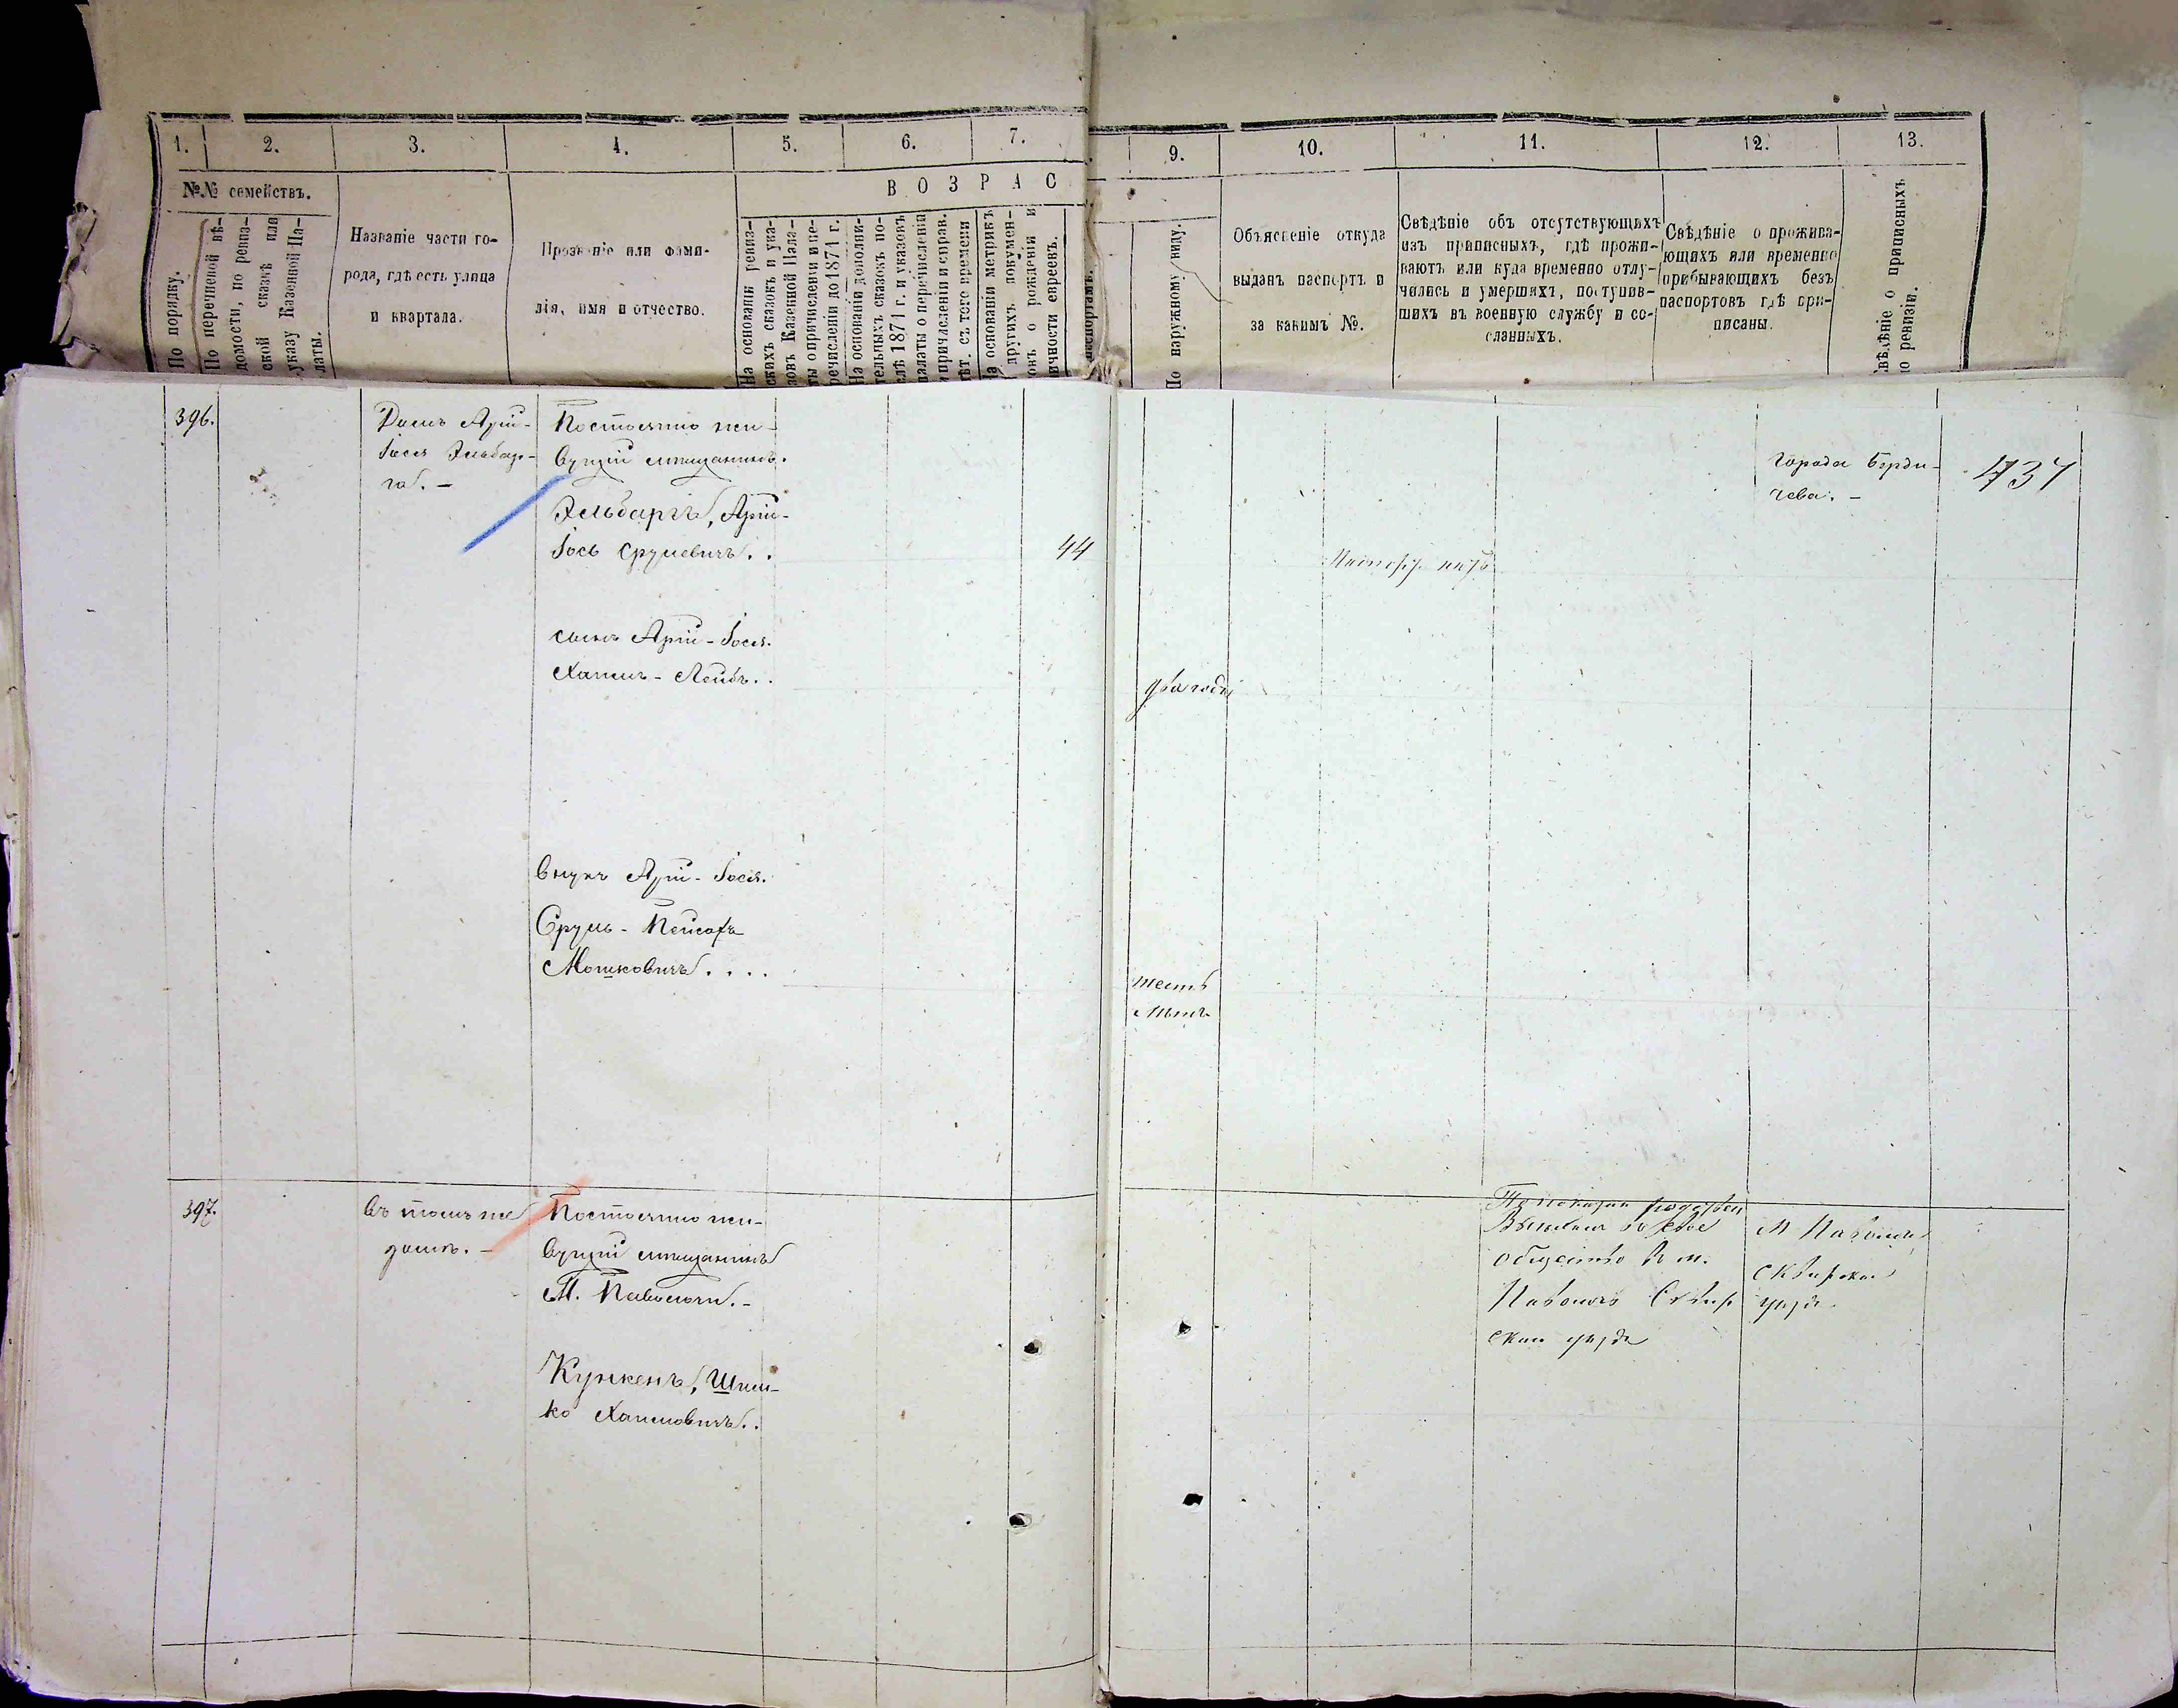 1.
2.
3.
4.
5.
6.
7.
9.
10.
11.
12.
13.
№№ семействъ.
По порядку.
По перечневой вѣ-
домости, по ревиз-
ской сказкѣ или
указу Казенной Па-
латы.
Названіе части го-
рода, гдѣ есть улица
и квартала.
Прозваніе или фами-
лія, имя и отчество.
ВОЗРАС
На основаніи ревиз-
скихъ сказокъ и ука-
зовъ Казенной Пала-
ты о причисленіи и пе-
речисленіи до 1874 г.
На основаніи дополни-
тельныхъ сказокъ по-
слѣ 1874 г. и указовъ
палаты о перечисленіи
и причисленіи и справ.
лѣт. съ того времени
основаніи метрикъ
другихъ докумен-
товъ о рожденіи и
личности евреевъ.
паспортамъ.
По наружному виду.
Объясненіе откуда
выданъ паспортъ и
за какимъ №.
Свѣдѣніе объ отсутствующихъ
изъ приписныхъ, гдѣ прожи-
ваютъ или куда временно отлу-
чились и умершихъ, поступив-
шихъ въ военную службу и со-
сланныхъ.
Свѣдѣніе о прожива-
ющихъ или временно
прибывающихъ безъ
паспортовъ гдѣ при-
писаны.
Свѣдѣніе о приписныхъ
по ревизіи.
396.
Домъ Арій-
Іося Эльбар-
га. -
Постоянно жи-
вущій мѣщанинъ.
Эльбаргъ, Арій-
Іось Срулевичъ . .
44
города Берди-
чева. -
437
сынъ Арій-Іося.
Хаимъ-Лейбъ. .
два года
внукъ Арій-Іося.
Сруль-Пейсахъ
Мошковичъ . . . .
шесть
лѣтъ
397.
въ томъ же
домѣ. -
Постоянно жи-
вущій мѣщанинъ
М. Паволочи. -
Кункенъ, Шлем-
ко Хаимовичъ. .
общество в м.
Паволочь Сквир
ском уѣзд
М Паволочь
Сквирска
уѣзда